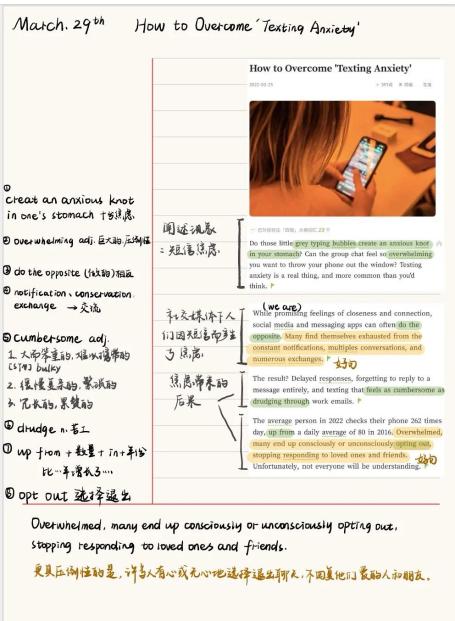 March. 29th How to Overcome 'Texting Anxiety'
How to Overcome 'Texting Anxiety'
2022-03-25
①
creat an anxious knot
in one's stomach 十分焦虑
② overwhelming adj. 巨大的,压倒性
③ do the opposite (做的)相反
④ notification、conservation
exchange → 交流
⑤ cumbersome adj.
1. 大而笨重的,难以携带的
bulky
2. 缓慢复杂的,繁琐的
3. 冗长的,累赘的
⑥ drudge n. 苦工
⑦ up from + 数量 + in + 年份
比…年增长了…
⑧ opt out 选择退出
阐述现象
:短信焦虑.
社交媒体下人
们因短信而产生
了焦虑.
焦虑带来的
后果
Do those little grey typing bubbles create an anxious knot
in your stomach? Can the group chat feel so overwhelming
you want to throw your phone out the window? Texting
anxiety is a real thing, and more common than you'd
think.
(we are)
While promising feelings of closeness and connection,
social media and messaging apps can often do the
opposite. Many find themselves exhausted from the
constant notifications, multiple conversations, and
numerous exchanges.
好句
The result? Delayed responses, forgetting to reply to a
message entirely, and texting that feels as cumbersome as
drudging through work emails.
The average person in 2022 checks their phone 262 times
day, up from a daily average of 80 in 2016. Overwhelmed,
many end up consciously or unconsciously opting out,
stopping responding to loved ones and friends. 好句
Unfortunately, not everyone will be understanding.
Overwhelmed, many end up consciously or unconsciously opting out,
stopping responding to loved ones and friends.
更具压倒性的是,许多人有心或无心地选择退出聊天,不回复他们爱的人和朋友.